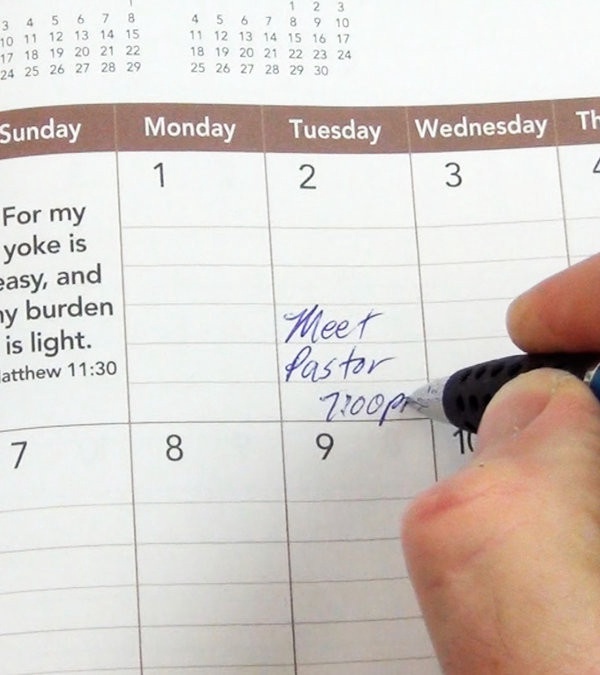 1 2 3
3 4 5 6 7 8 4 5 6 7 8 9 10
10 11 12 13 14 15 11 12 13 14 15 16 17
17 18 19 20 21 22 18 19 20 21 22 23 24
24 25 26 27 28 29 25 26 27 28 29 30
Sunday Monday Tuesday Wednesday Th
1 2 3 4
For my
yoke is
easy, and
my burden
is light.
Matthew 11:30
Meet
Pastor
7:00pm
7 8 9 10